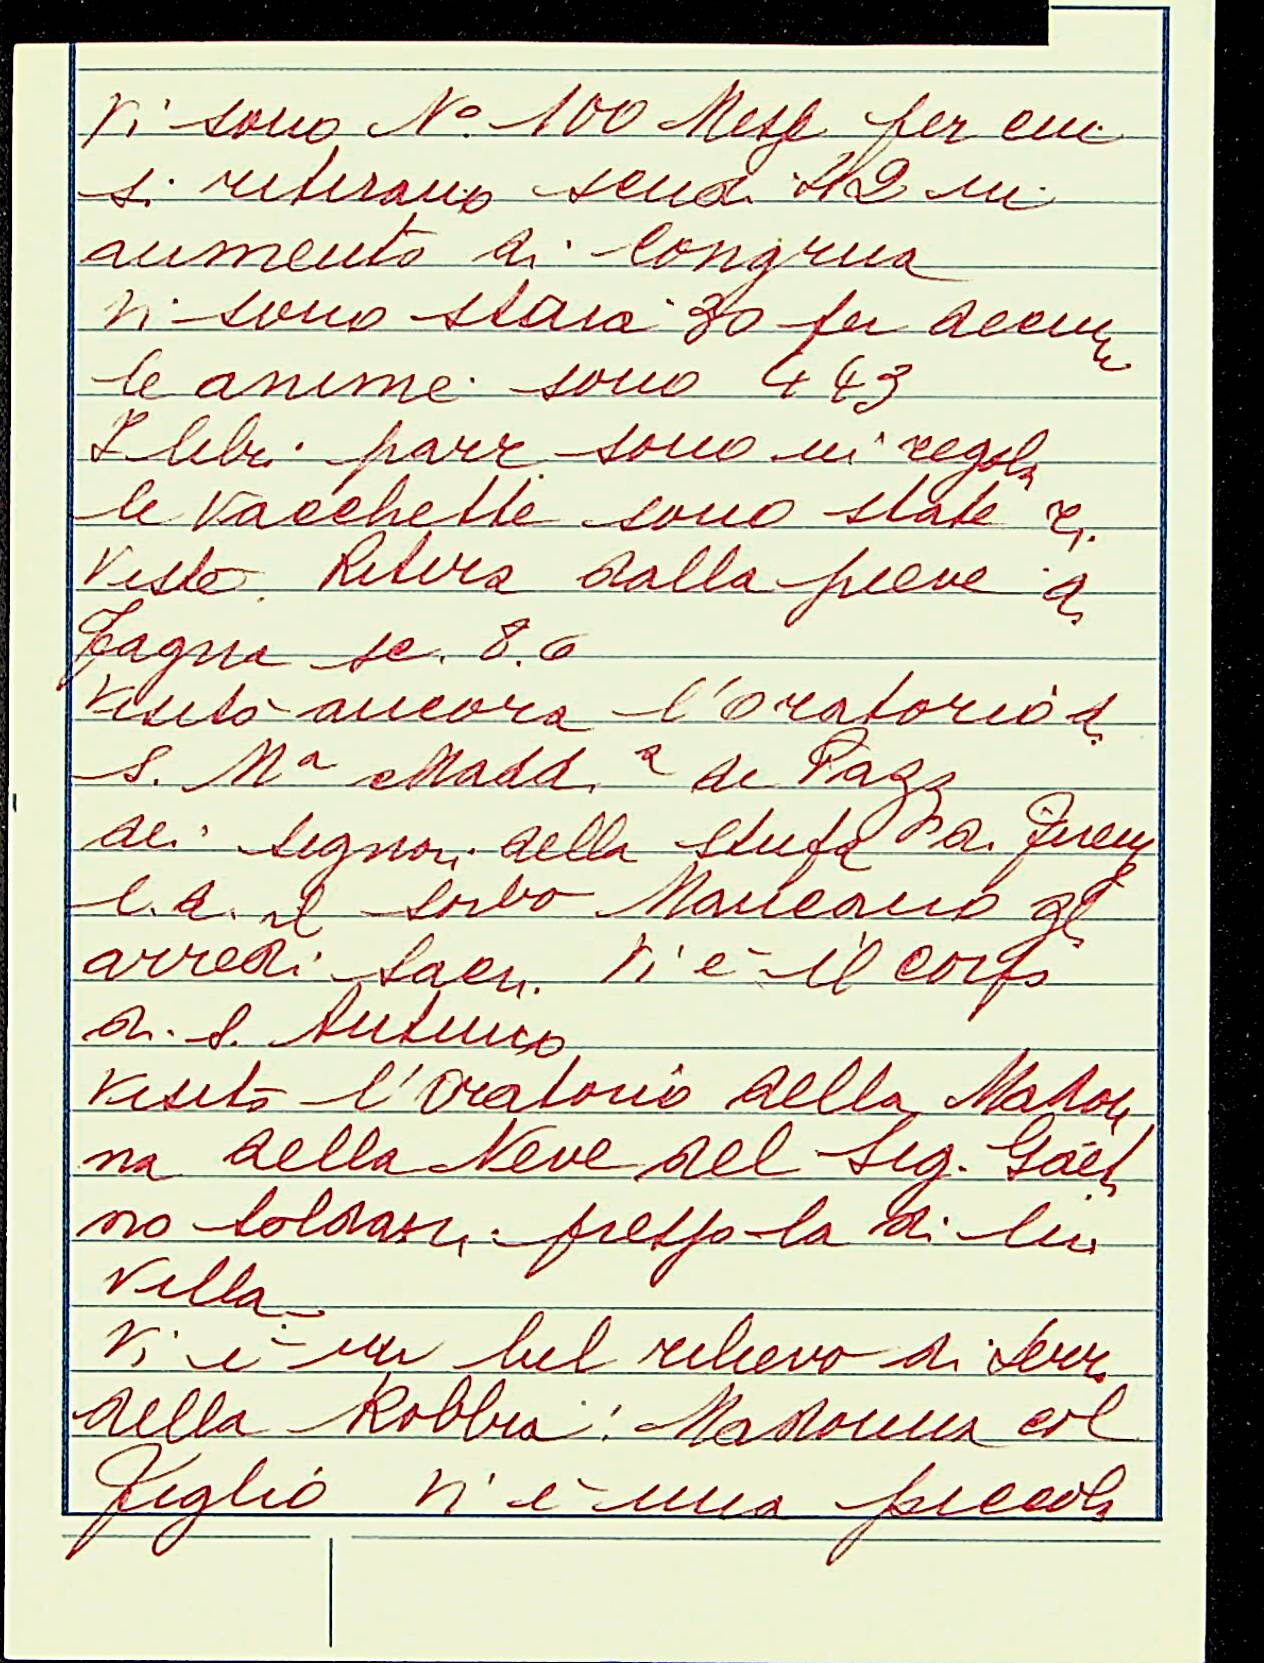 Vi sono N° 100 Messe per cui
si ritirano scudi 42 in
aumento di Congrua
Vi sono staia 30 per decime
le anime sono 443
I libri parr. sono in regola
le Vacchette sono state ri
viste. Ritira dalla pieve di
Fagna sc. 8.6
Visitò ancora l'oratorio di
S. Mª Madd.ª de Pazzi
dei signori della Stufa di Firenze
l.d. il Sorbo Mancano gli
arredi sacri. Vi è il corpo
di S. Antonio
Visitò l'oratorio della Madon
na della Neve del Sig. Gaeta
no Soldani presso la di lui
Villa
Vi è un bel rilievo di terr.
della Robbia: Madonna col
Figlio Vi è una piccola